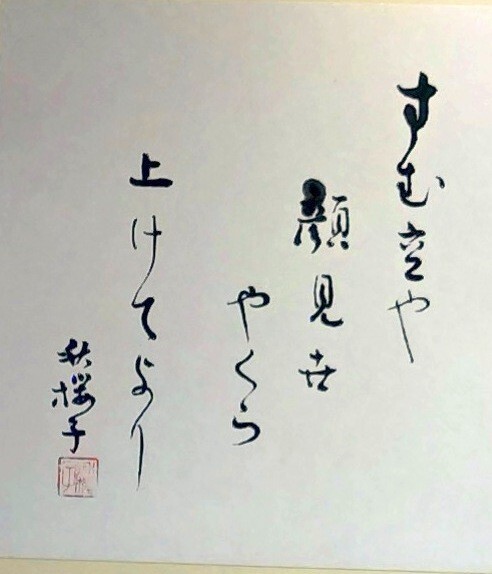 すむ空や
顔見世
やくら
上けてより
秋櫻子